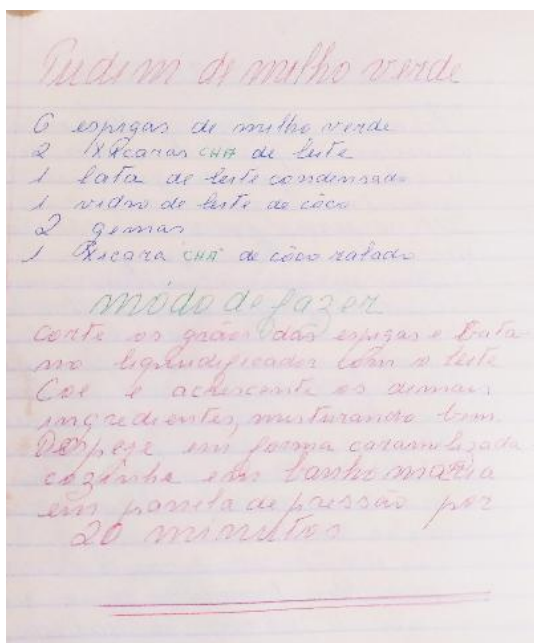 Pudim de milho verde
6 espigas de milho verde
2 xicaras CHA de leite
1 lata de leite condensado
1 vidro de leite de côco
2 gemas
1 xicara CHA de côco ralado
módo de fazer
Corte os grãos das espigas e Bata
no liquidificador com o leite
Coe e acrescente os demais
ingredientes, misturando bem.
Despeje em forma caramelizada
cozinhe em banho maria
em panela de pressão por
20 minutos